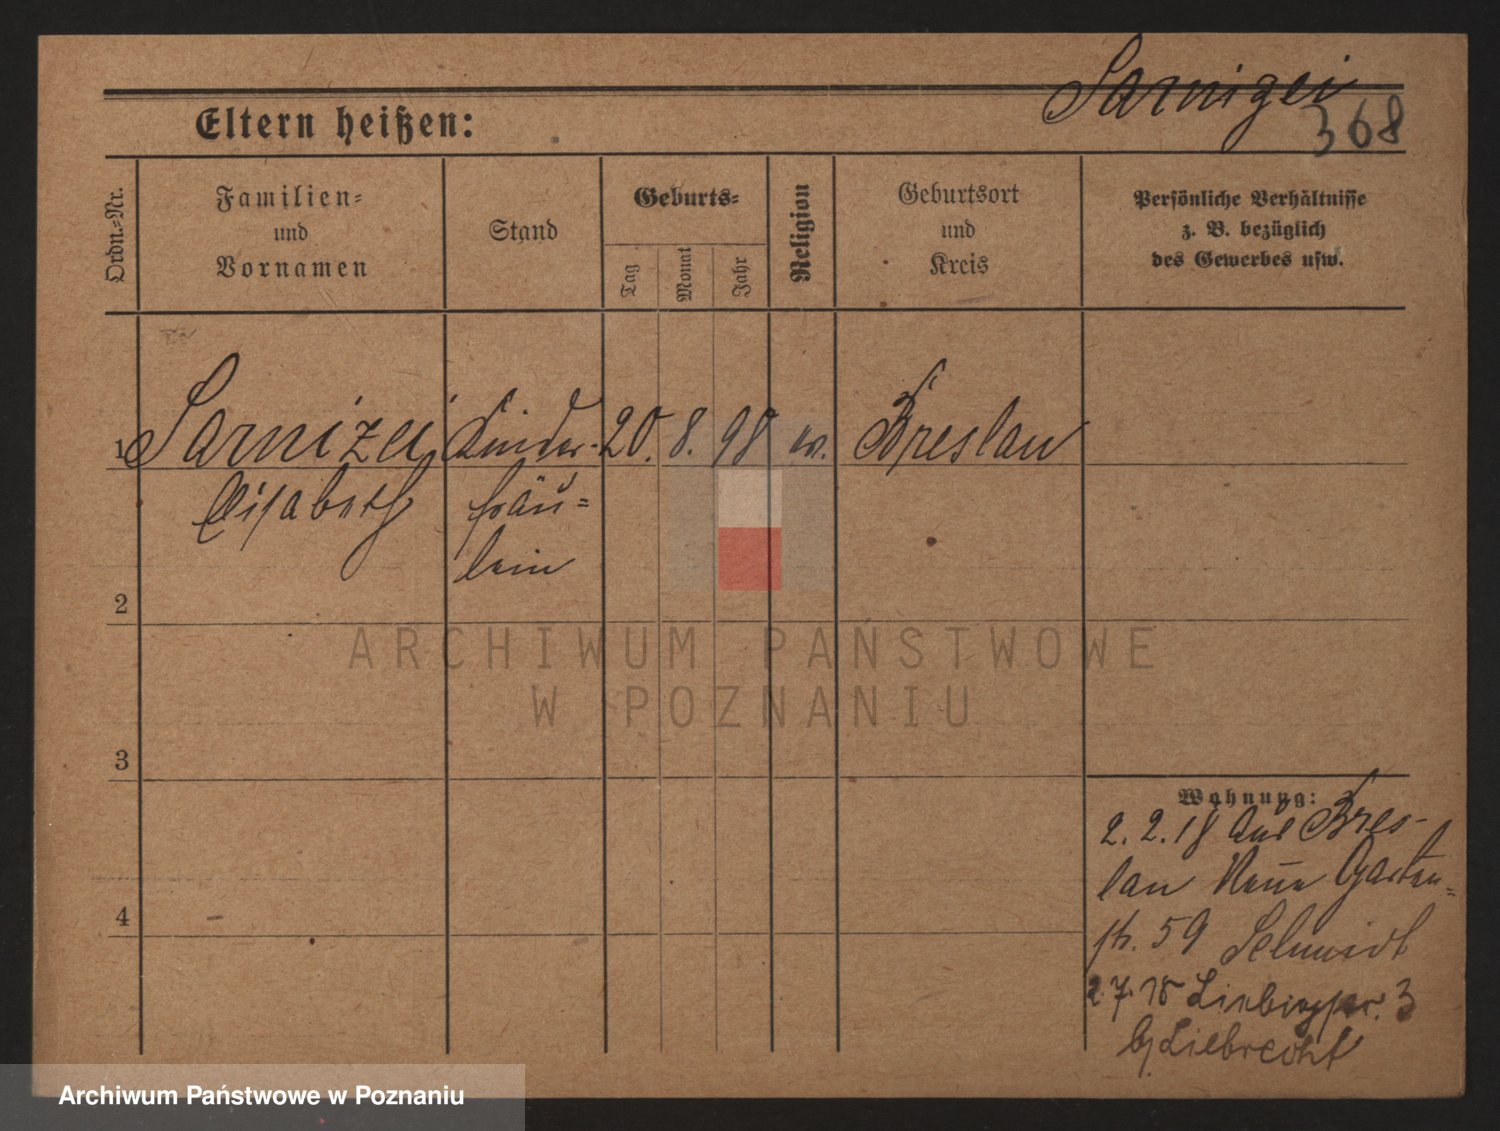 Sarnizei
368
Eltern heißen:
Ordn.-Nr.
Familien-
und
Vornamen
Stand
Geburts-
Tag
Monat
Jahr
Religion
Geburtsort
und
Kreis
Persönliche Verhältnisse
z. B. bezüglich
des Gewerbes usw.
1 Sarnizei Kinder- 20. 8. 98 ev. Breslau
Elisabeth fräu=
lein
2
3
4
Wohnung:
2. 2. 18 aus Bres-
lau Neue Garten=
str. 59 Schmidt
2. 7. 18 3
b/ Liebrecht
ARCHIWUM PAŃSTWOWE
W POZNANIU
Archiwum Państwowe w Poznaniu